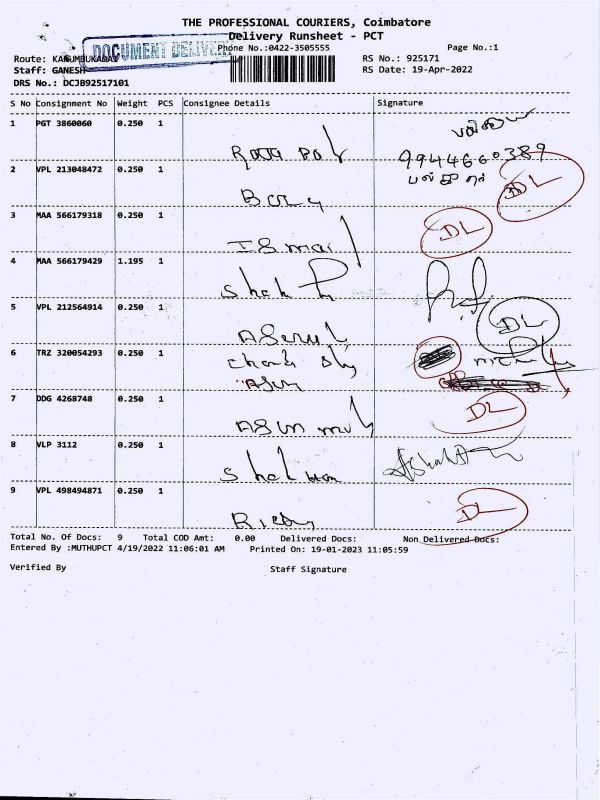 THE PROFESSIONAL COURIERS, Coimbatore
Delivery Runsheet - PCT
DOCUMENT DELIVERY
Phone No.:0422-3505555
Page No.:1
Route: KARUMBUKADAI
RS No.: 925171
Staff: GANESH
RS Date: 19-Apr-2022
DRS No.: DCJB92517101
S No Consignment No Weight PCS Consignee Details Signature
1 PGT 3860060 0.250 1
9944660389
2 VPL 213048472 0.250 1
DL
3 MAA 566179318 0.250 1
DL
Ismail
4 MAA 566179429 1.195 1
5 VPL 212564914 0.250 1
DL
6 TRZ 320054293 0.250 1
7 DDG 4268748 0.250 1
DL
8 VLP 3112 0.250 1
9 VPL 498494871 0.250 1
DL
Total No. Of Docs: 9 Total COD Amt: 0.00 Delivered Docs: Non Delivered Docs:
Entered By :MUTHUPCT 4/19/2022 11:06:01 AM Printed On: 19-01-2023 11:05:59
Verified By Staff Signature